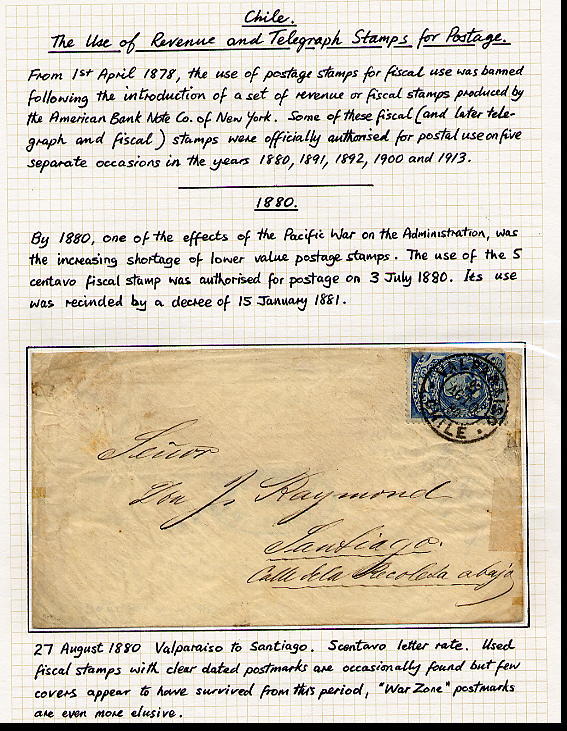 Chile.
The Use of Revenue and Telegraph Stamps for Postage.
From 1st April 1878, the use of postage stamps for fiscal use was banned
following the introduction of a set of revenue or fiscal stamps produced by
the American Bank Note Co. of New York. Some of these fiscal (and later tele-
graph and fiscal) stamps were officially authorised for postal use on five
separate occasions in the years 1880, 1891, 1892, 1900 and 1913.
1880.
By 1880, one of the effects of the Pacific War on the Administration, was
the increasing shortage of lower value postage stamps. The use of the 5
centavo fiscal stamp was authorised for postage on 3 July 1880. Its use
was recinded by a decree of 15 January 1881.
VALPARAISO
CHILE
Señor
Dn J. Raymond
Santiago.
Calle de la Recoleta abajo
27 August 1880 Valparaiso to Santiago. 5centavo letter rate. Used
fiscal stamps with clear dated postmarks are occasionally found but few
covers appear to have survived from this period, "War Zone" postmarks
are even more elusive.